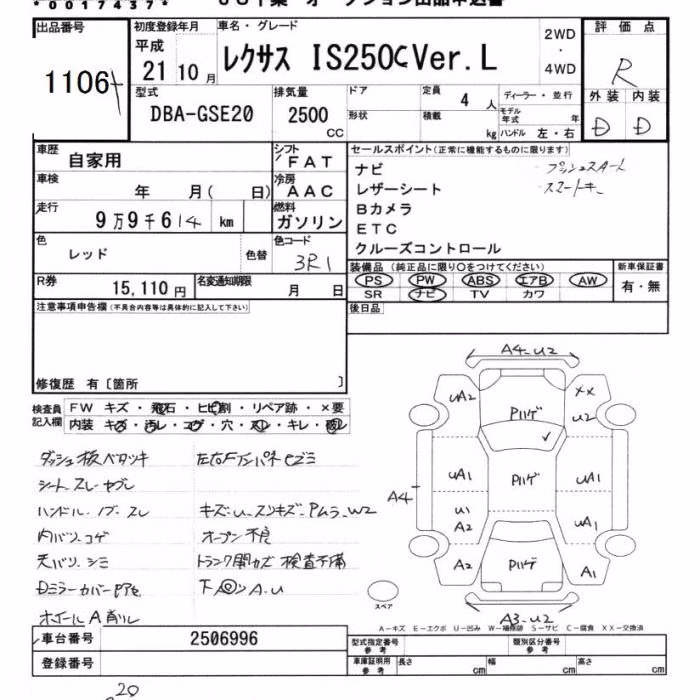 *0017437*
出品番号
1106
初度登録年月
平成
21 10月
車名・グレード
レクサス IS250C Ver.L
2WD
・
4WD
評価点
R
外装 内装
D D
型式
DBA-GSE20
排気量
2500
CC
ドア
形状
定員
4 人
積載
kg
ディーラー・並行
モデル年式 年
ハンドル 左・右
車歴
自家用
シフト
FAT
車検
年 月( 日)
冷房
AAC
走行
9万9千614 km
燃料
ガソリン
色
レッド
色替
色コード
3R1
R券
15,110円
名変通知期限
月 日
セールスポイント(正常に機能するものに限ります)
ナビ
レザーシート
Bカメラ
ETC
クルーズコントロール
プッシュスタート
スマートキー
装備品(純正品に限り○をつけてください)
PS PW ABS エアB AW
SR ナビ TV カワ
新車保証書
有・無
後日品
注意事項申告欄(不具合内容等は具体的に記入して下さい)
修復歴 有〔箇所 〕
検査員記入欄
FW キズ・飛石・ヒビ割・リペア跡・×要
内装 キズ・汚レ・コゲ・穴・スレ・キレ・破レ
ダッシュ板ベタツキ
シートスレ
ハンドル・ノブ・スレ
内バリコゲ
天バリシミ
Dミラーカバー
ホイールA削レ
キズ・U・スリキズ・Pムラ・W2
オープン不良
トランク開カズ 検査不備
A4-U2
UA2
XX
U2
Pハゲ
UA1
Pハゲ
UA1
A4
U1
A2
UA1
A2
Pハゲ
A1
A3-U2
スペア
A-キズ E-エクボ U-凹み W-補修跡 S-サビ C-腐食 XX-交換済
車台番号
2506996
登録番号
型式指定番号
参考
類別区分番号
参考
車庫証明用
参考
長さ cm
幅 cm
高さ cm
20